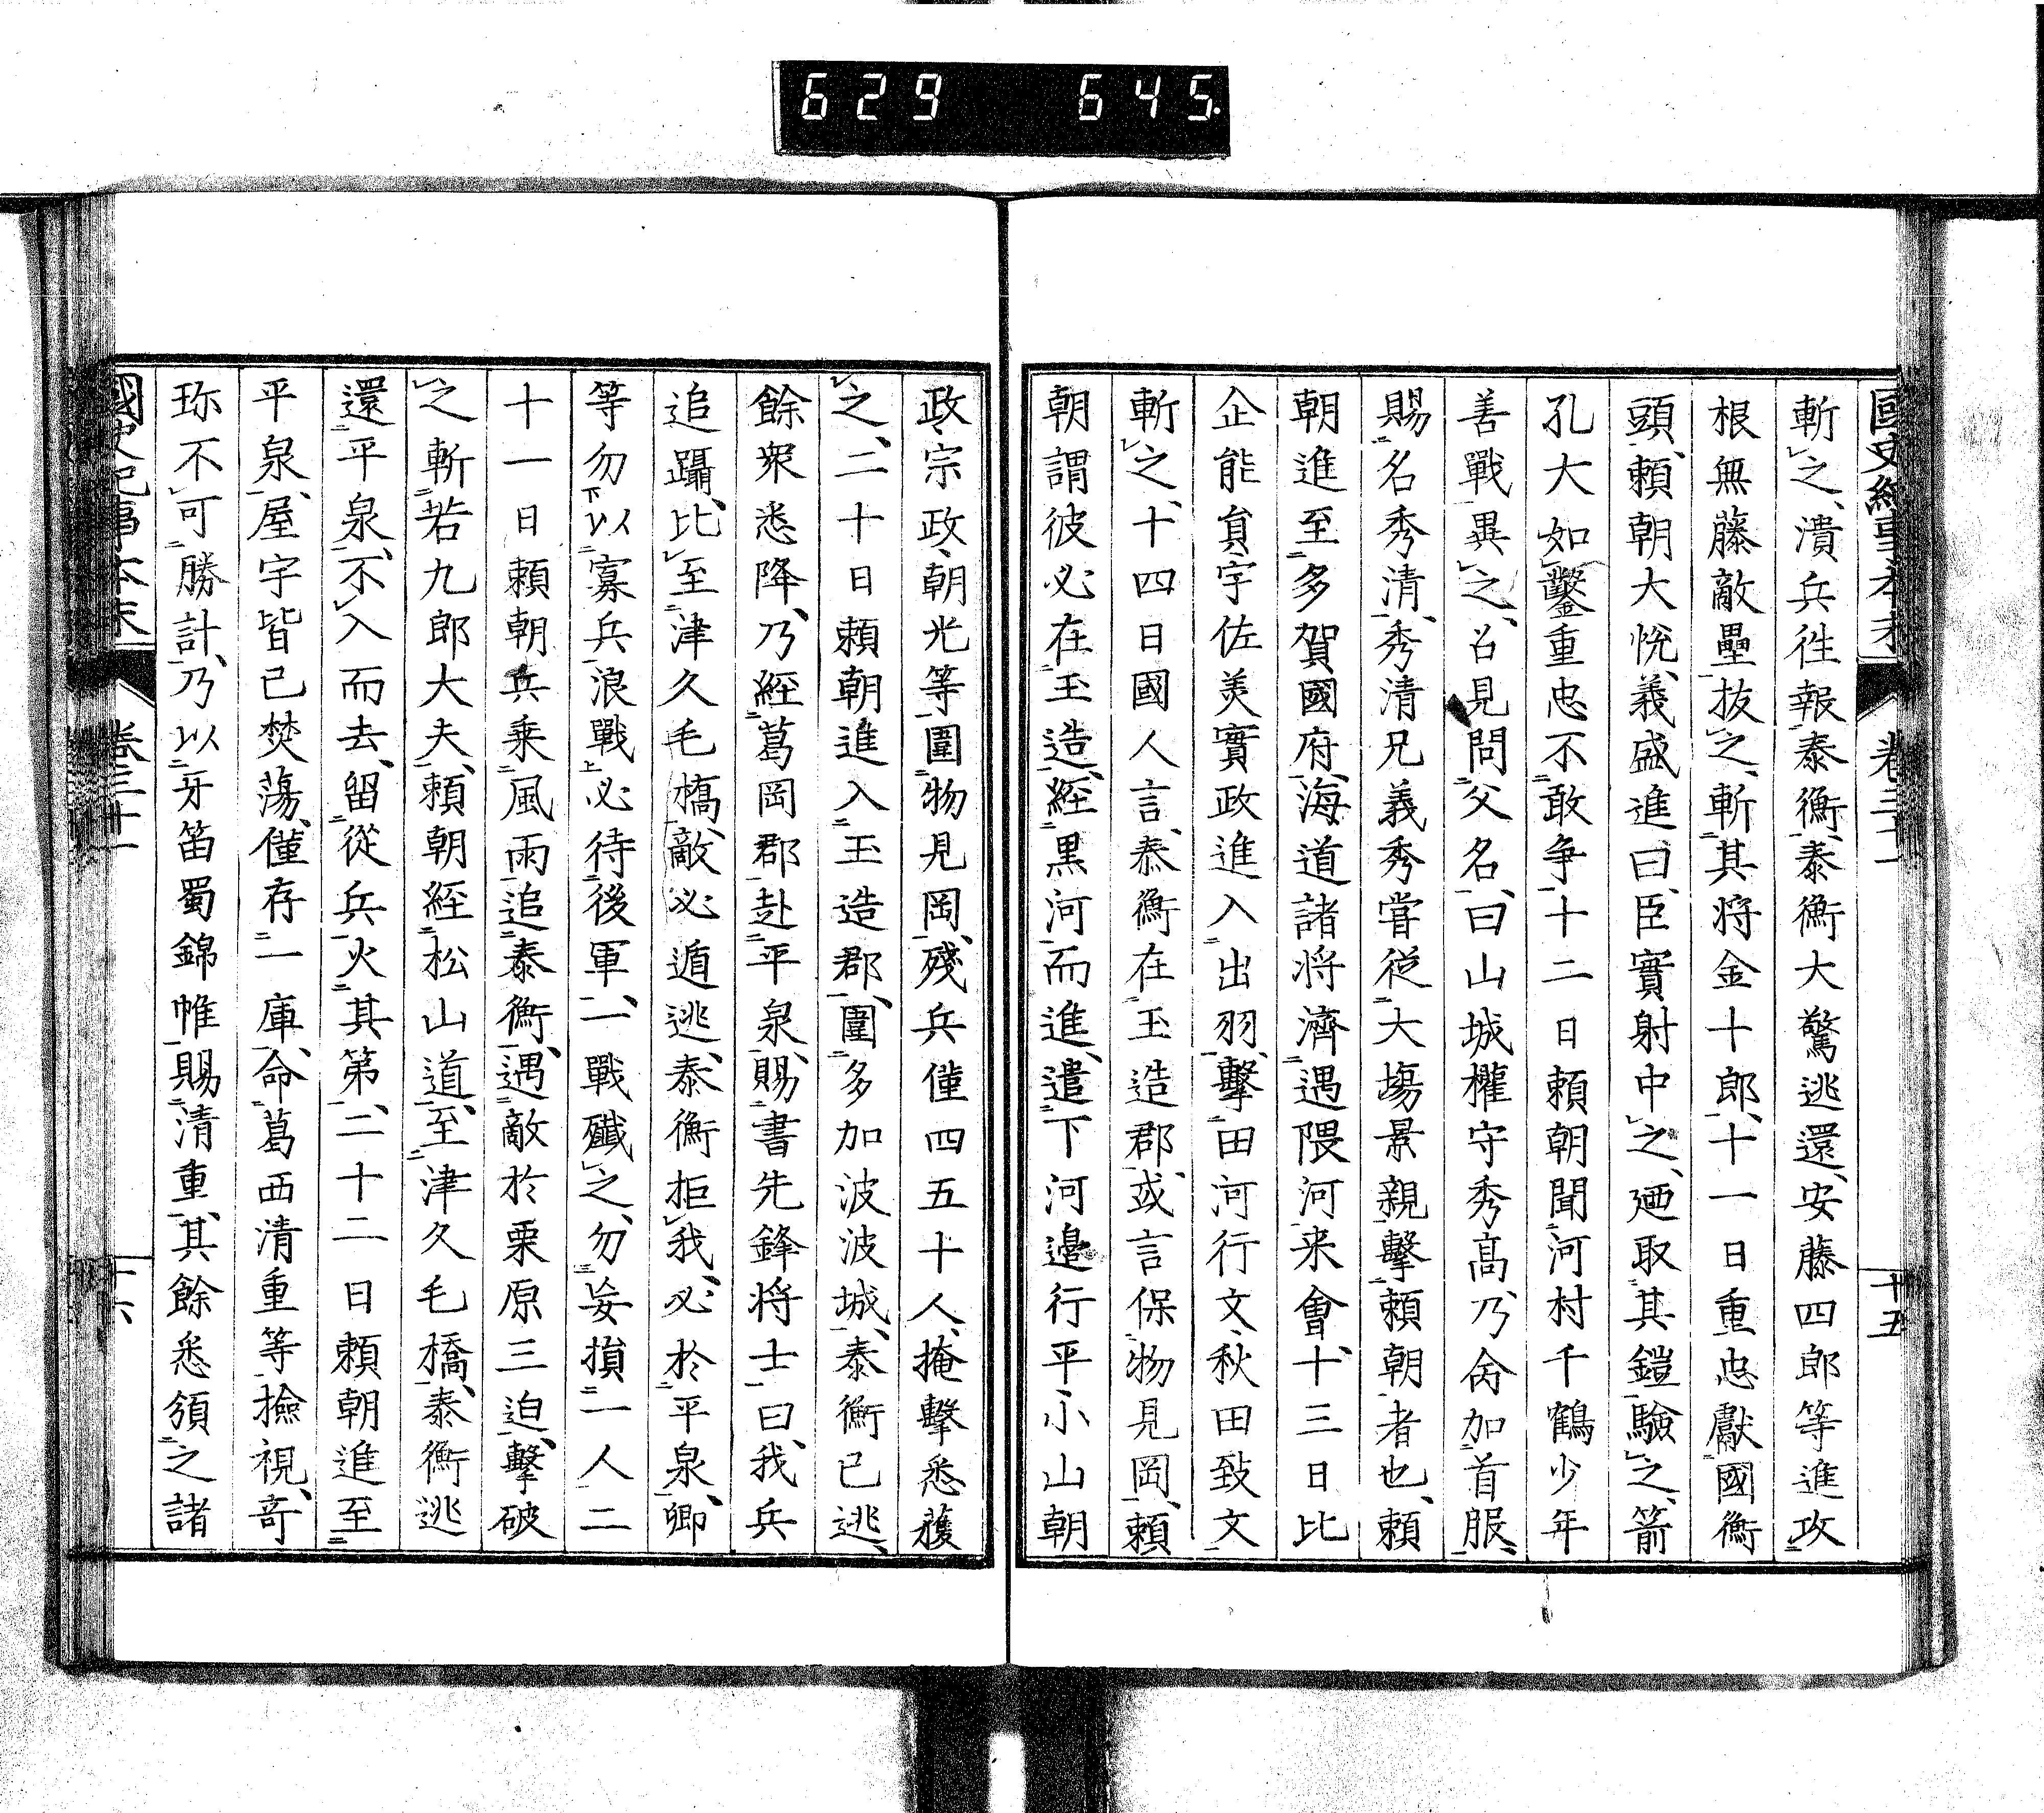 629 645.
國史紀事本末 卷三十一 十五
斬之、潰兵徃報泰衡、泰衡大驚逃還、安藤四郎等進攻
根無藤敵壘拔之、斬其将金十郎、十一日重忠獻國衡
頭、賴朝大悅、義盛進曰、臣實射中之、廼取其鎧驗之、箭
孔大如鑿、重忠不敢争、十二日賴朝聞河村千鶴少年
善戰異之、召見問父名、曰山城權守秀高、乃命加首服、
賜名秀清、秀清兄義秀嘗從大場景親擊賴朝者也、賴
朝進至多賀國府、海道諸将濟遇隈河来會、十三日比
企能貟宇佐美實政進入出羽、擊田河行文、秋田致文
斬之、十四日國人言、泰衡在玉造郡、或言保物見岡、賴
朝謂彼必在玉造、經黒河而進、遣下河邉行平小山朝
政、宗政、朝光等圍物見岡、殘兵僅四五十人、掩擊悉獲
之、二十日賴朝進入玉造郡、圍多加波波城、泰衡已逃、
餘衆悉降、乃經葛岡郡赴平泉、賜書先鋒将士曰、我兵
追躡、比至津久毛橋、敵必遁逃、泰衡拒我、必於平泉、卿
等勿以寡兵浪戰、必待後軍、一戰殲之、勿妄損一人、二
十一日賴朝兵乗風雨追泰衡、遇敵於栗原三迫、擊破
之斬若九郎大夫、賴朝經松山道、至津久毛橋、泰衡逃
還平泉、不入而去、留從兵火其第、二十二日賴朝進至
平泉、屋宇皆已焚蕩、僅存一庫、命葛西清重等撿視、竒
珎不可勝計、乃以牙笛蜀錦帷賜清重、其餘悉頒之諸
國史紀事本末 卷三十一 十六